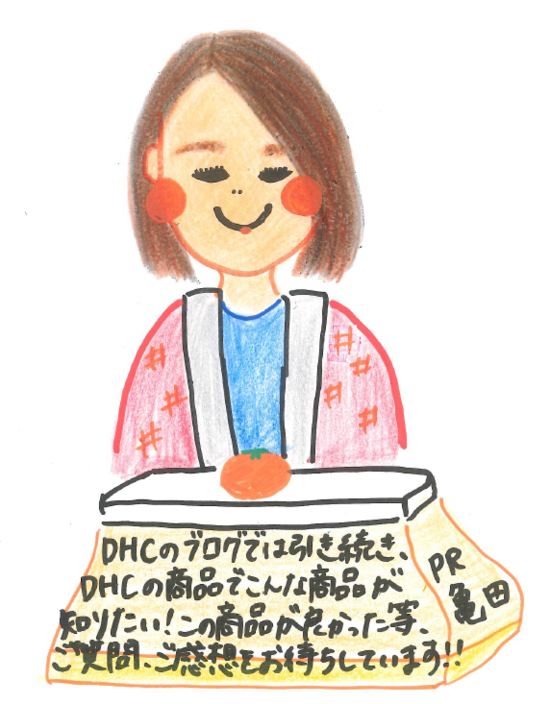 DHCのブログでは引き続き、
DHCの商品でこんな商品が
知りたい！この商品が良かった等、
ご質問、ご感想をお待ちしています!!
PR
亀田